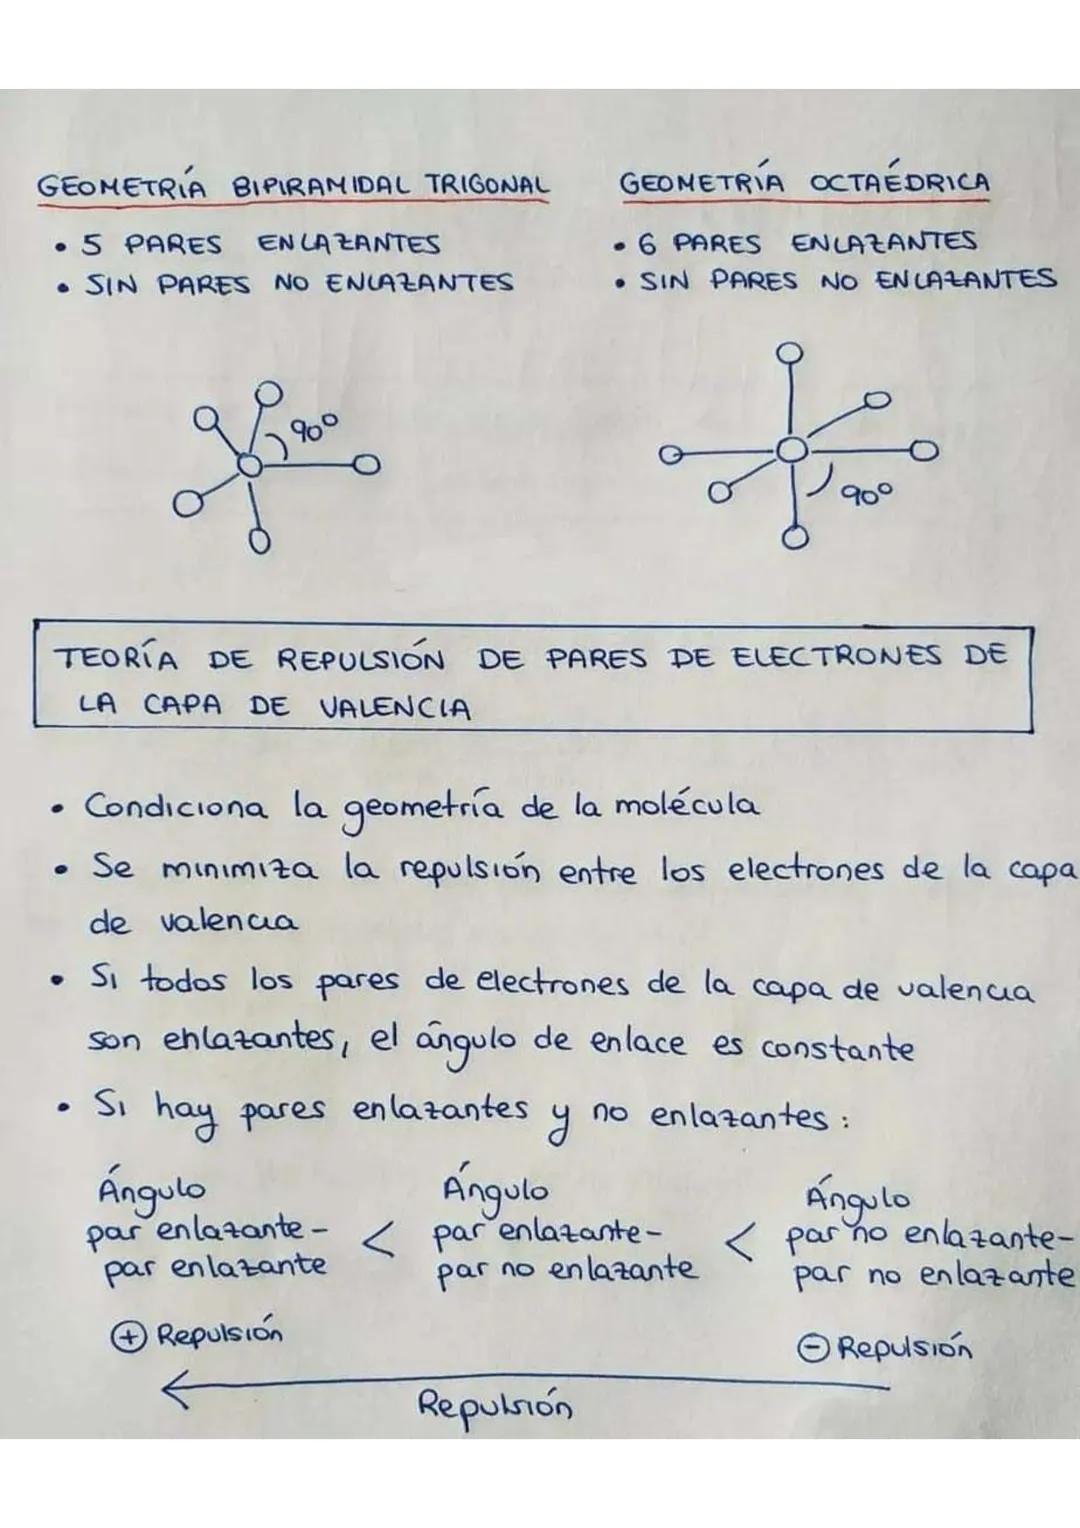 GEOMETRÍA BIPIRAMIDAL TRIGONAL
• 5 PARES ENLAZANTES
• SIN PARES NO ENLAZANTES
90º
GEOMETRÍA OCTAÉDRICA
• 6 PARES ENLAZANTES
• SIN PARES NO ENLAZANTES
90º
TEORÍA DE REPULSIÓN DE PARES DE ELECTRONES DE
LA CAPA DE VALENCIA
• Condiciona la geometría de la molécula
• Se minimiza la repulsión entre los electrones de la capa
de valencia
• Si todos los pares de electrones de la capa de valencia
son enlazantes, el ángulo de enlace es constante
• Si hay pares enlazantes y no enlazantes:
Ángulo
par enlazante-
par enlazante
<
Ángulo
par enlazante-
par no enlazante
<
Ángulo
par no enlazante-
par no enlazante
+ Repulsión
- Repulsión
Repulsión